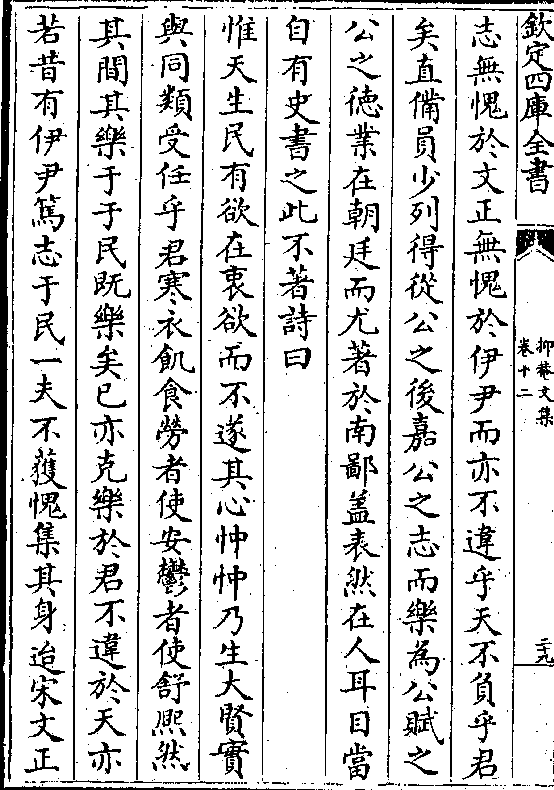 欽定四庫全書
抑菴文集
卷十二
二十九
志無愧於文正無愧於伊尹而亦不違乎天不負乎君
矣直備員少列得從公之後嘉公之志而樂為公賦之
公之徳業在朝廷而尤著於南鄙盖表然在人耳目當
自有史書之此不著詩曰
惟天生民有欲在衷欲而不遂其心忡忡乃生大賢實
與同類受任乎君寒衣飢食勞者使安鬱者使舒熙然
其間其樂于于民既樂矣已亦克樂於君不違於天亦
若昔有伊尹篤志于民一夫不獲愧集其身迨宋文正